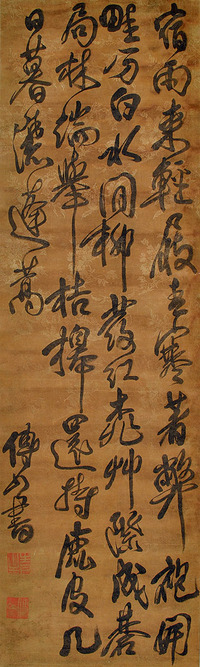 宿雨乘輕屐春寒著弊袍開
畦分白水間柳發紅桃艸際成碁
局林端舉桔槔還持鹿皮几
日暮隱蓬蒿
傅山書